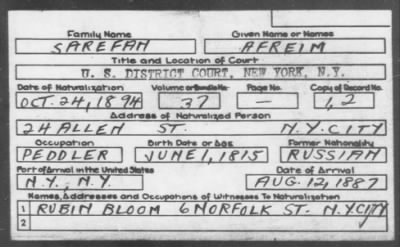 Family Name Given Name or Names
SAREFAH AFREIM
Title and Location of Court
U. S. DISTRICT COURT, NEW YORK, N.Y.
Date of Naturalization Volume or Bundle No. Page No. Copy of Record No.
OCT. 24, 1894 37 — 1, 2
Address of Naturalized Person
24 ALLEN ST. N.Y. CITY
Occupation Birth Date or Age Former Nationality
PEDDLER JUNE 1, 1815 RUSSIAN
Port of Arrival in the United States Date of Arrival
N.Y., N.Y. AUG. 12, 1887
Names, Addresses and Occupations of Witnesses To Naturalization
1 RUBIN BLOOM 6 NORFOLK ST. N.Y. CITY
2